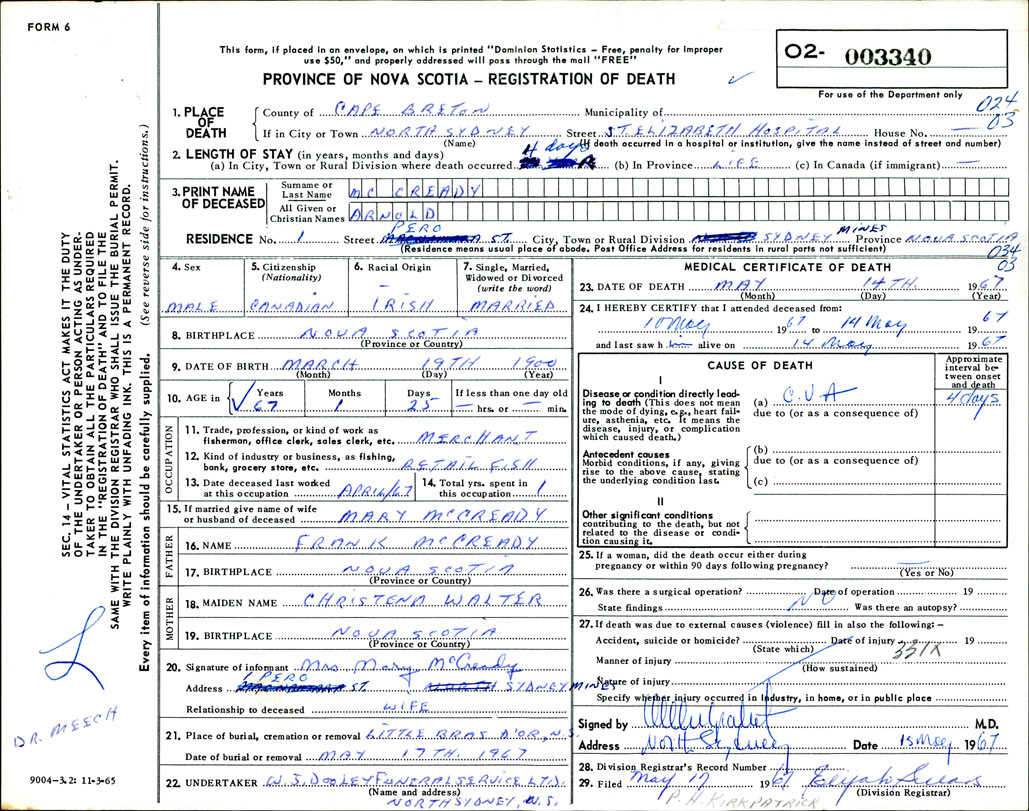 FORM 6
This form, if placed in an envelope, on which is printed "Dominion Statistics – Free, penalty for improper
use $50," and properly addressed will pass through the mail "FREE"
PROVINCE OF NOVA SCOTIA – REGISTRATION OF DEATH
O2- 003340
For use of the Department only
024
03
1. PLACE OF DEATH
County of CAPE BRETON Municipality of
If in City or Town NORTH SYDNEY Street ST. ELIZABETH HOSPITAL House No. —
(Name) (If death occurred in a hospital or institution, give the name instead of street and number)
2. LENGTH OF STAY (in years, months and days) 4 days
(a) In City, Town or Rural Division where death occurred (b) In Province LIFE (c) In Canada (if immigrant) —
3. PRINT NAME OF DECEASED
Surname or Last Name MC CREADY
All Given or Christian Names ARNOLD
RESIDENCE No. 1 Street PERO ST. City, Town or Rural Division SYDNEY MINES Province NOVA SCOTIA
(Residence means usual place of abode. Post Office Address for residents in rural parts not sufficient)
034
03
4. Sex
MALE
5. Citizenship
(Nationality)
CANADIAN
6. Racial Origin
IRISH
7. Single, Married,
Widowed or Divorced
(write the word)
MARRIED
8. BIRTHPLACE NOVA SCOTIA
(Province or Country)
9. DATE OF BIRTH MARCH 19TH 1900
(Month) (Day) (Year)
10. AGE in Years Months Days If less than one day old
67 1 25 — hrs. or — min.
OCCUPATION
11. Trade, profession, or kind of work as
fisherman, office clerk, sales clerk, etc. MERCHANT
12. Kind of industry or business, as fishing,
bank, grocery store, etc. RETAIL FISH
13. Date deceased last worked
at this occupation APRIL/67
14. Total yrs. spent in
this occupation 1
15. If married give name of wife
or husband of deceased MARY MCCREADY
FATHER
16. NAME FRANK MCCREADY
17. BIRTHPLACE NOVA SCOTIA
(Province or Country)
MOTHER
18. MAIDEN NAME CHRISTENA WALTER
19. BIRTHPLACE NOVA SCOTIA
(Province or Country)
20. Signature of informant Mrs Mary McCready
Address 1 PERO ST. SYDNEY MINES
Relationship to deceased WIFE
21. Place of burial, cremation or removal LITTLE BRAS D'OR, N.S.
Date of burial or removal MAY 17TH. 1967
22. UNDERTAKER W.J. DOOLEY FUNERAL SERVICE LTD.
(Name and address)
NORTH SYDNEY, N.S.
MEDICAL CERTIFICATE OF DEATH
23. DATE OF DEATH MAY 14TH. 1967
(Month) (Day) (Year)
24. I HEREBY CERTIFY that I attended deceased from:
10 May 1967 to 14 May 1967
and last saw him alive on 14 May 1967
CAUSE OF DEATH
Approximate
interval be-
tween onset
and death
I
Disease or condition directly lead-
ing to death (This does not mean
the mode of dying, e.g., heart fail-
ure, asthenia, etc. It means the
disease, injury, or complication
which caused death.)
(a) C.V.A 4 days
due to (or as a consequence of)
Antecedent causes
Morbid conditions, if any, giving
rise to the above cause, stating
the underlying condition last.
(b)
due to (or as a consequence of)
(c)
II
Other significant conditions
contributing to the death, but not
related to the disease or condi-
tion causing it.
25. If a woman, did the death occur either during
pregnancy or within 90 days following pregnancy? —
(Yes or No)
26. Was there a surgical operation? NO Date of operation 19
State findings Was there an autopsy?
27. If death was due to external causes (violence) fill in also the following: –
Accident, suicide or homicide? Date of injury 19
(State which) 331X
Manner of injury
(How sustained)
Nature of injury
Specify whether injury occurred in Industry, in home, or in public place
Signed by M.D.
Address North Sydney Date 15 May 1967
28. Division Registrar's Record Number
29. Filed May 17 1967
(Division Registrar)
P.H. KIRKPATRICK
SEC. 14 – VITAL STATISTICS ACT MAKES IT THE DUTY
OF THE UNDERTAKER OR PERSON ACTING AS UNDER-
TAKER TO OBTAIN ALL THE PARTICULARS REQUIRED
IN THE "REGISTRATION OF DEATH" AND TO FILE THE
SAME WITH THE DIVISION REGISTRAR WHO SHALL ISSUE THE BURIAL PERMIT.
WRITE PLAINLY WITH UNFADING INK. THIS IS A PERMANENT RECORD.
Every item of information should be carefully supplied. (See reverse side for instructions.)
DR. MEECH
9004-3.2: 11-3-65